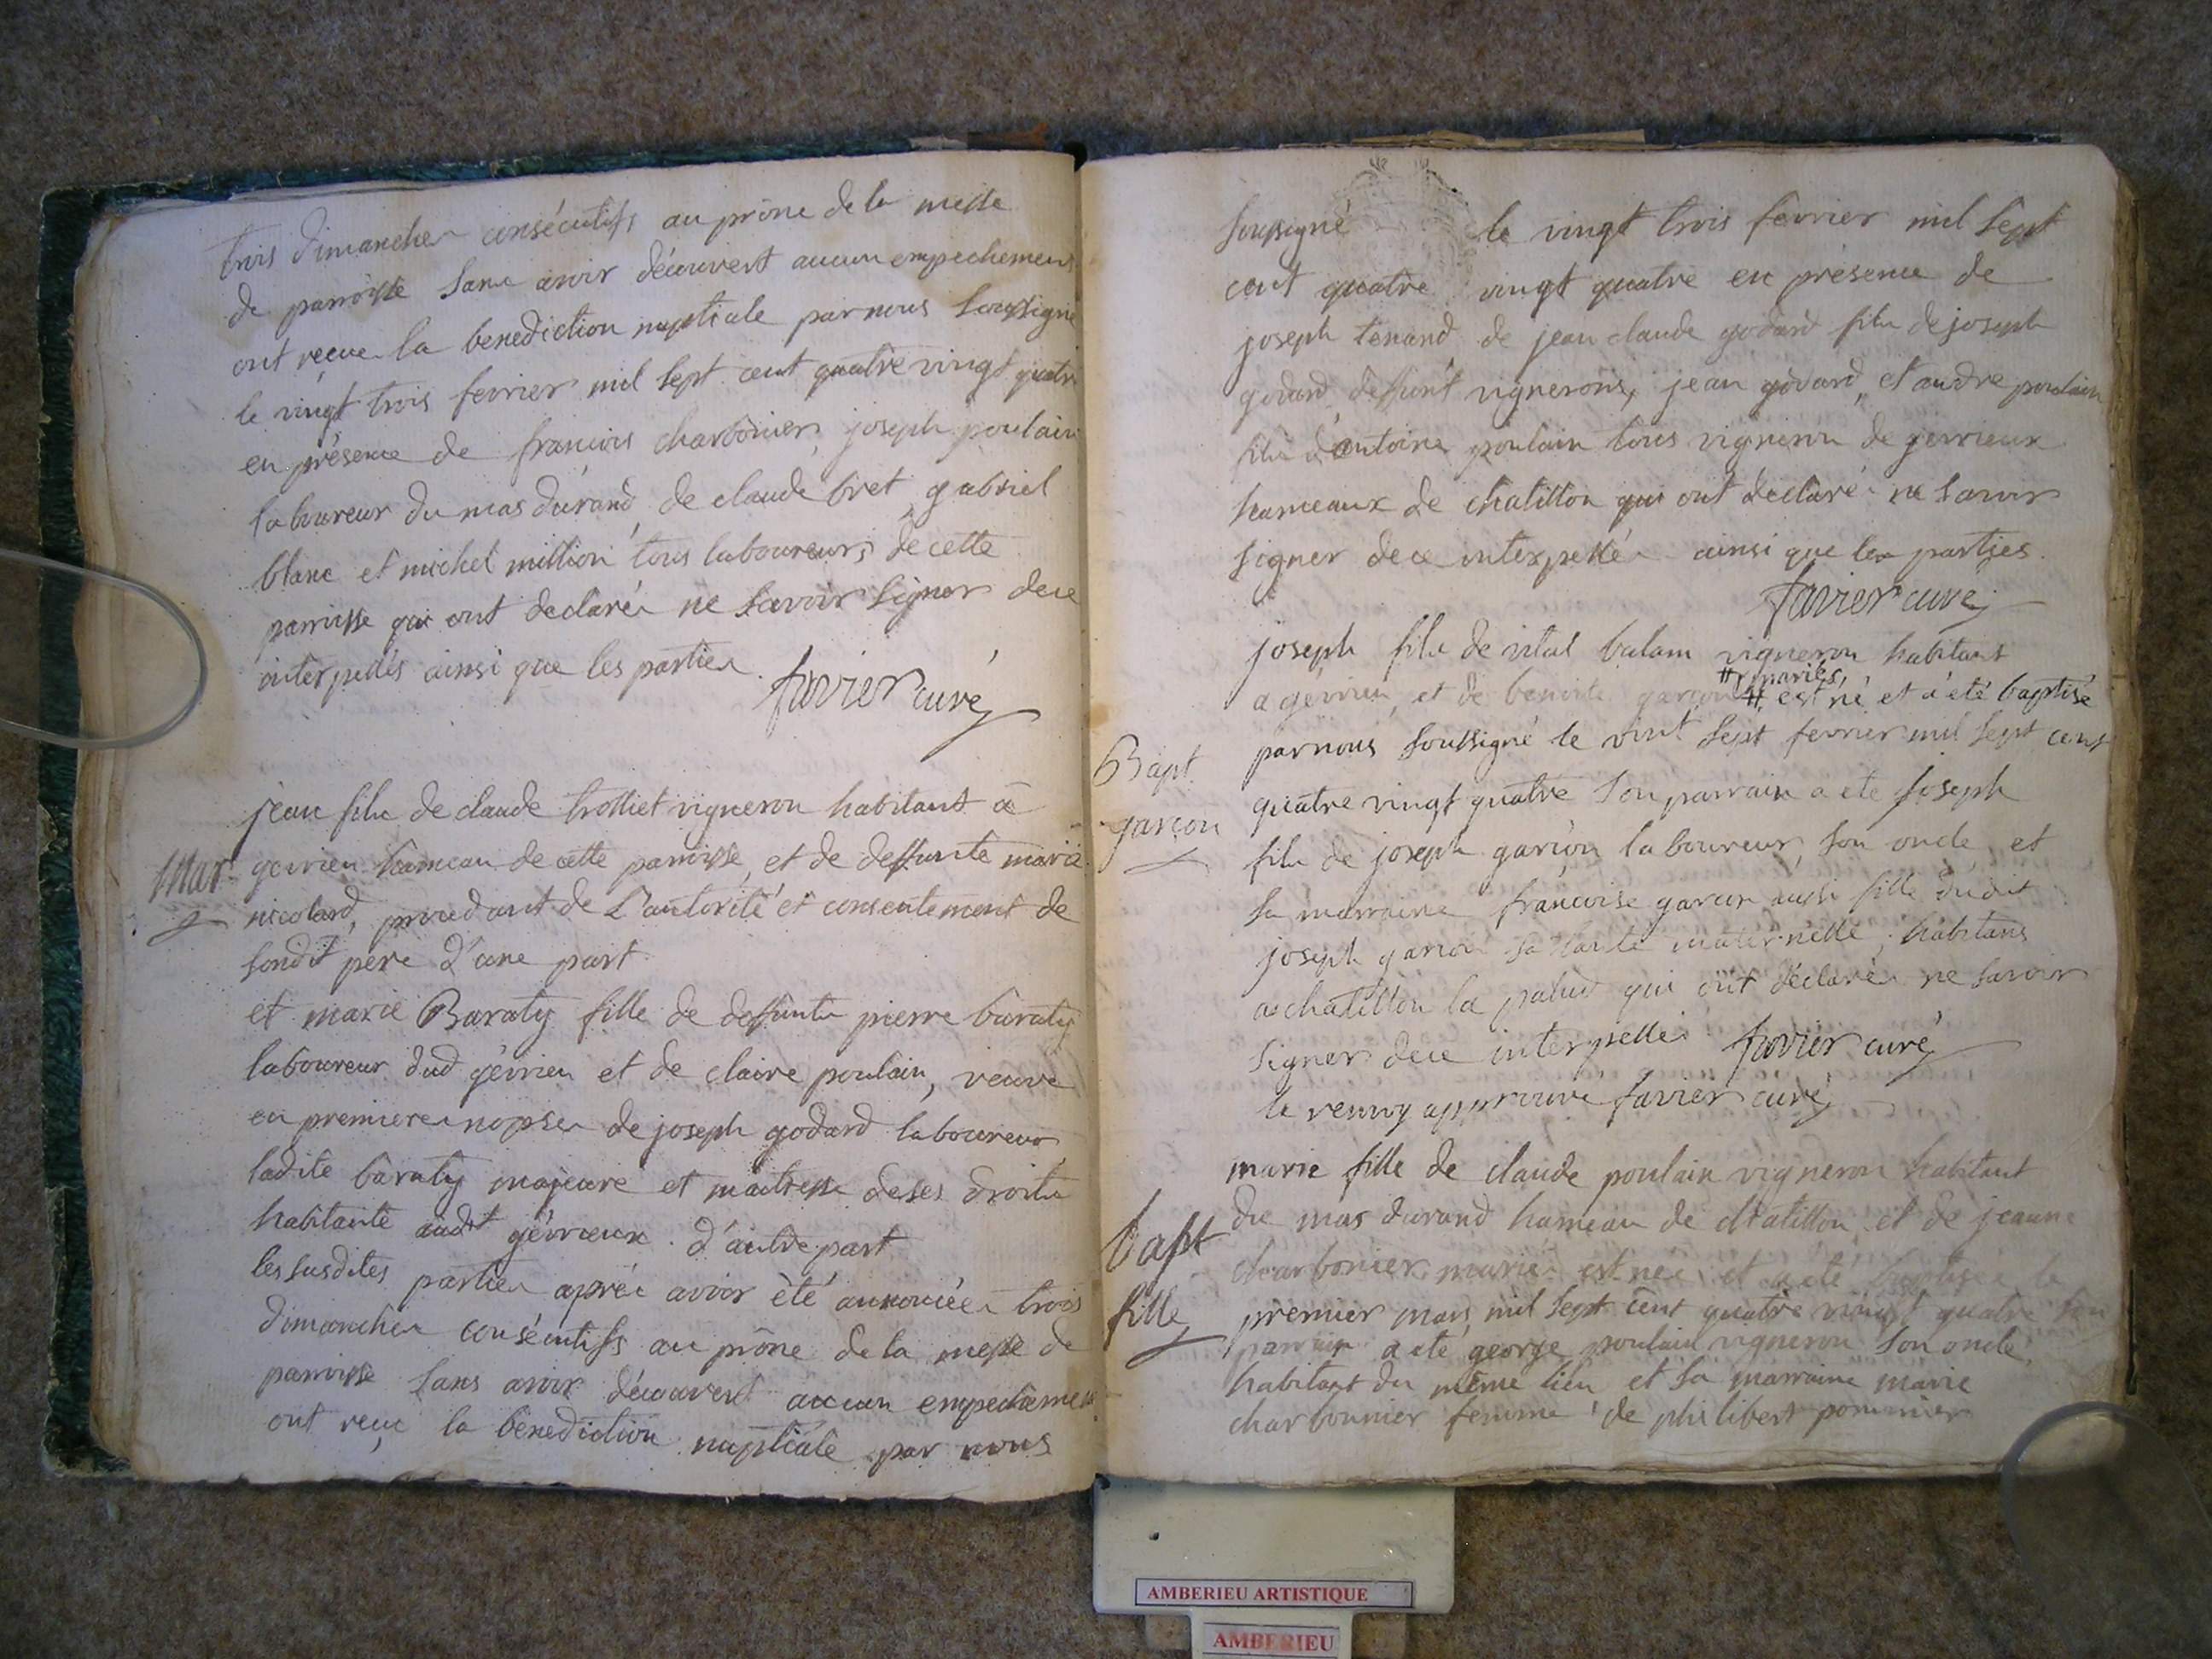 trois dimanches consécutifs au prône de la messe
de parroisse sans avoir découvert aucun empechement
ont reçue la benediction nuptiale par nous soussigné
le vingt trois fevrier mil sept cent quatre vingt quatre
en présence de francois charbonier, joseph poulain
laboureur du mas durand, de claude bret, gabriel
blanc et michel million tous laboureurs de cette
parroisse qui ont declarés ne savoir signer de ce
interpellés ainsi que les parties.
favier curé
Mar
jean fils de claude trolliet vigneron habitant à
gevrieu hameau de cette parroisse, et de deffunte marie
nicolard, procedant de L'autorité et consentement de
sondit pere d'une part.
et marie Baraty fille de deffunts pierre baraty
laboureur dud gévrieu et de claire poulain, veuve
en premieres nopses de joseph godard laboureur
ladite baraty majeure et maitresse de ses droits
habitante audt gévrieux. d'autre part
les susdites parties aprés avoir été annoncées trois
dimanches consécutifs au prône de la messe de
parroisse sans avoir découvert aucun empechement
ont reçu la bénédiction nuptiale par nous
soussigné le vingt trois fevrier mil sept
cent quatre vingt quatre en présence de
joseph tenand, de jean claude godard fils de joseph
godard deffunt vignerons, jean godard, et andre poulain
fils d'antoine poulain tous vignerons de gevrieux
hameaux de chatillon qui ont declarés ne savoir
signer de ce interpellés ainsi que les parties.
favier curé
Bapt.
garçon
joseph fils de vital balam vigneron habitant
# mariés
a gévrieu, et de benoite garçon # est né et a été baptisé
par nous soussigné le vint sept fevrier mil sept cent
quatre vingt quatre son parrain a ete joseph
fils de joseph garçon laboureur, son oncle, et
sa marraine francoise garçon aussi fille dudit
joseph garçon sa tante maternelle, habitans
a chatillon la palud qui ont déclarés ne savoir
signer de ce interpellés favier curé
le renvoy approuvé favier curé
bapt
fille
marie fille de claude poulain vigneron habitant
du mas durand hameau de chatillon et de jeanne
charbonier mariés est née et a été baptisée le
premier mars mil sept cent quatre vingt quatre son
parrain a eté george poulain vigneron son oncle
habitant du même lieu et sa marraine marie
charbounier femme de philibert pommier
AMBERIEU ARTISTIQUE
AMBERIEU